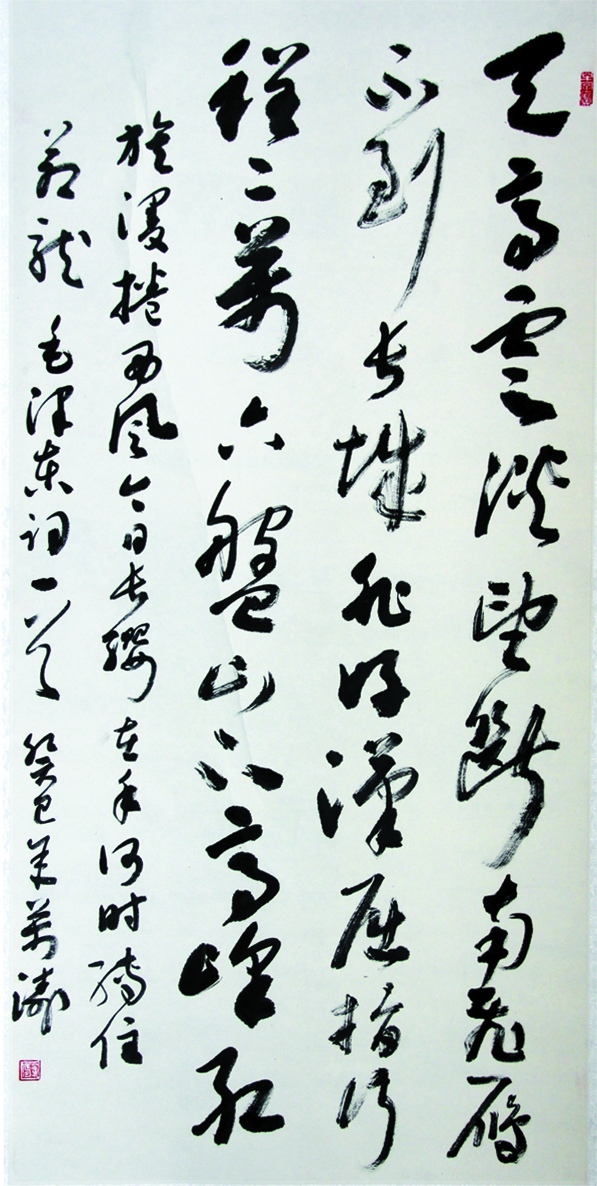 天高雲淡望斷南飛雁
不到長城非好漢屈指行
程二萬六盤山上高峰紅
旗漫捲西風今日長纓在手何时縛住
蒼龍 毛澤東詞一首 癸巳 萬濤